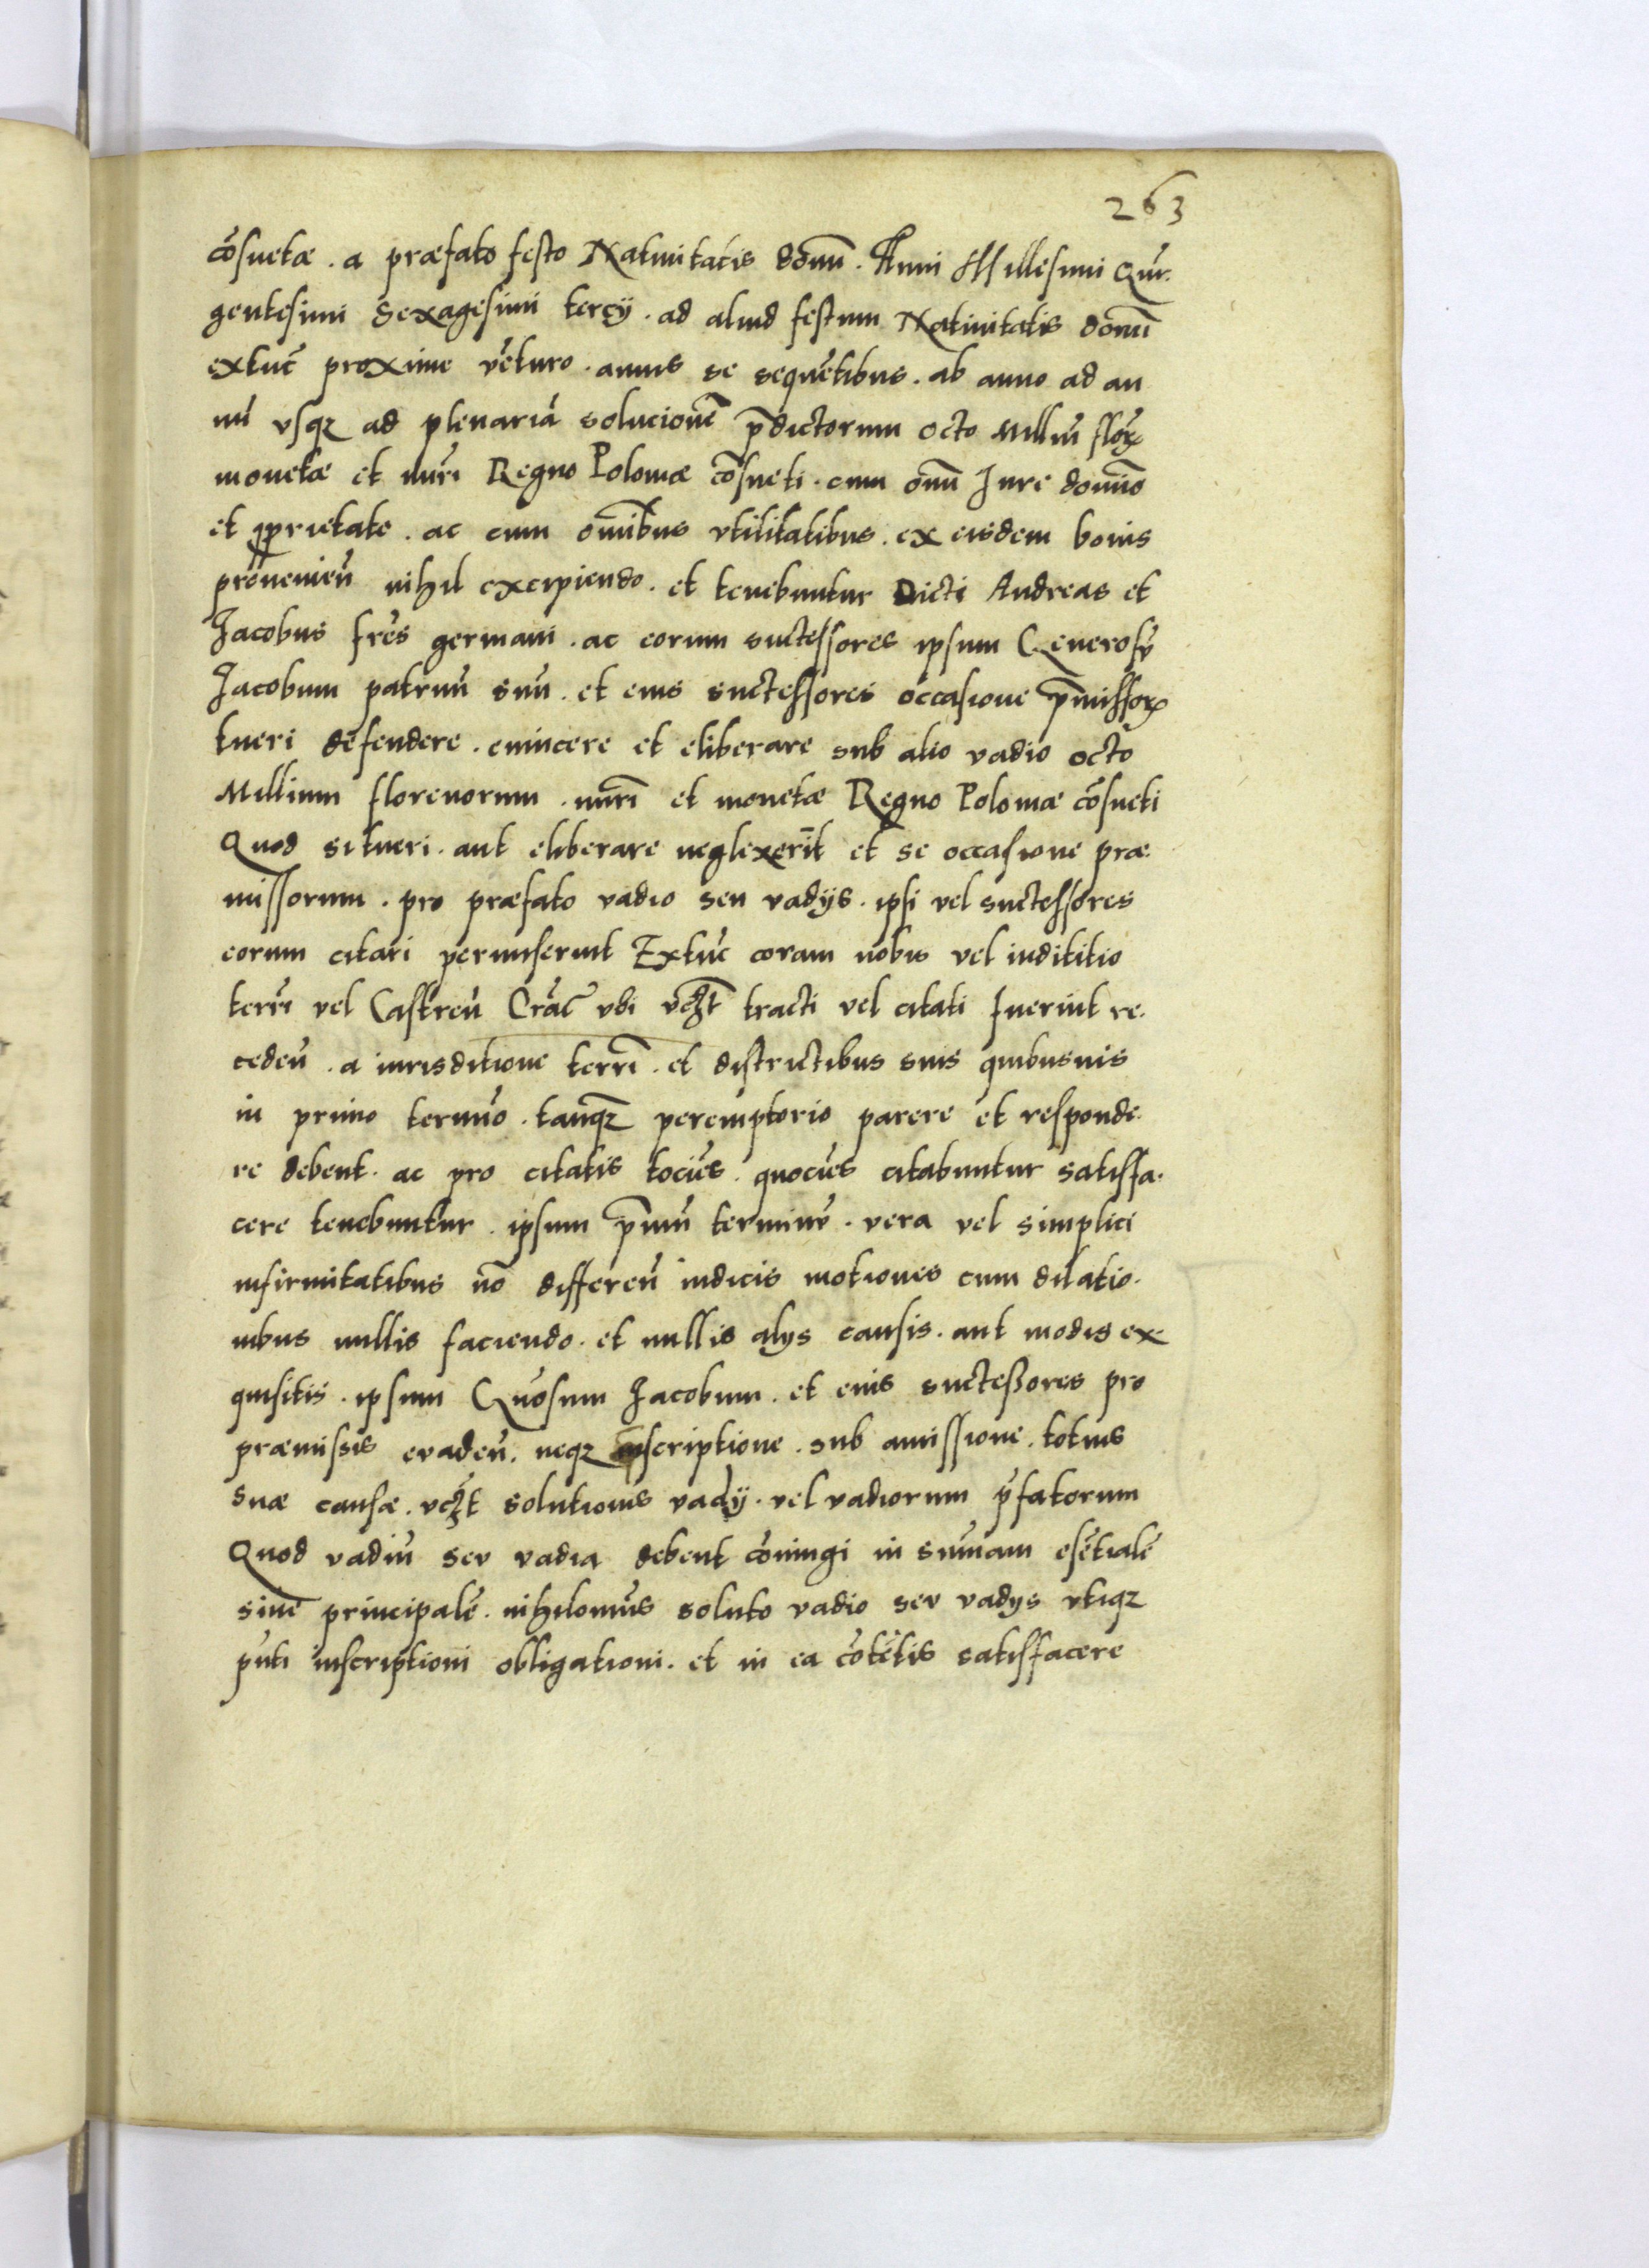 263
cōsuetæ . a præfato festo Natiuitatis domī . Anni Millesimi Quī-
gentesimi Sexagesimi tercÿ . ad aliud festum Natiuitatis domī
extūc proxime vēturo . annis se sequētibus . ab anno ad an
nū vsqz ad plenariā solucionē p̄dictorum octo Milliū floꝝ
monetæ et nūri Regno Poloniæ cōsueti . cum omī Iure dominio
et ꝓprietate . ac cum omībus vtilitatibus . ex eisdem bonis
prouenieñ nihil excipiendo . et tenebuntur Dicti Andreas et
Jacobus frēs germani . ac eorum suctessores ipsum Generosū
Jacobum patruū suū . et eius suctessores occasione p̄missoꝝ
tueri defendere . euincere et eliberare sub alio vadio octo
Millium florenorum . nūri et monetæ Regno Poloniæ cōsueti
Quod si tueri . aut eliberare neglexerīt et se occasione præ-
missorum . pro præfato vadio seu vadÿs . ipsi vel suctessores
eorum citari permiserint Extūc coram nobis vel inditio
terrī vel Castreñ Crāc vbi vꝫt tracti vel citati fuerint re-
cedeñ . a iurisditione terrī . et districtibus suis quibusuis
in primo termīo . tanqz peremptorio parere et responde-
re debent . ac pro citatis tociēs . quociēs citabuntur satisfa-
cere tenebuntur . ipsum p̄mū terminū . vera vel simplici
infirmitatibus nō differeñ iudicis motiones cum dilatio-
nibus nullis faciendo . et nullis alÿs causis . aut modis ex-
quisitis . ipsum Gnōsum Jacobum . et eius suctessores pro
præmissis euadeñ . neqz inscriptione . sub amissione . totius
suæ causæ . vꝫt solutionis vadÿ . vel vadiorum p̄fatorum
Quod vadiū seu vadia debent cōiungi in sūmam esētialē
siue principalē . nihilomīs soluto vadio seu vadÿs vtiqz
pn̄ti inscriptioni obligationi . et in ea cōtētis satisfacere